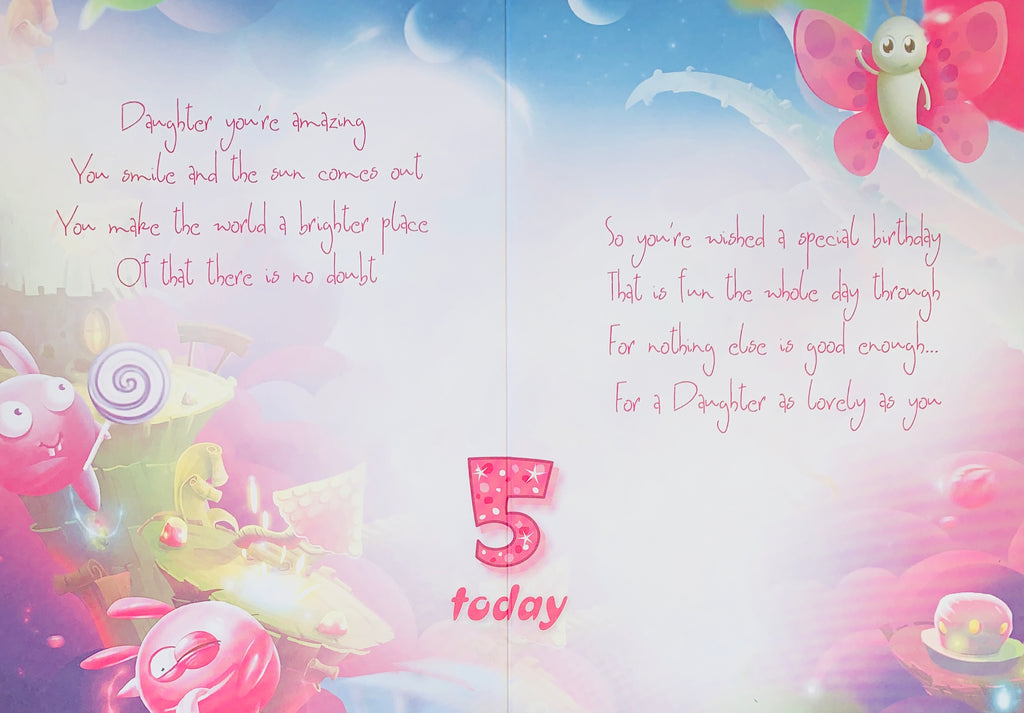 Daughter you're amazing
You smile and the sun comes out
You make the world a brighter place
Of that there is no doubt
So you're wished a special birthday
That is fun the whole day through
For nothing else is good enough...
For a Daughter as lovely as you
5
today